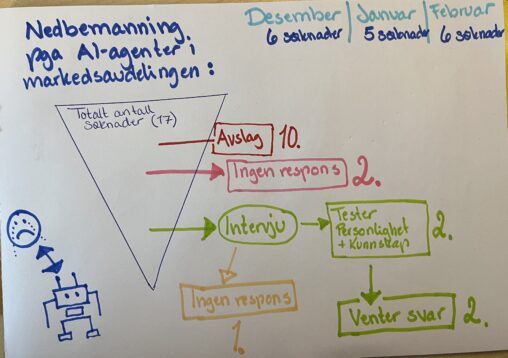 Nedbemanning
pga AI-agenter i
markedsavdelingen :
Desember | Januar | Februar
6 søknader 5 søknader 6 søknader
Totalt antall
søknader (17)
Avslag 10.
Ingen respons 2.
Intervju
Tester
Personlighet
+ Kunnskap
2.
Ingen respons
1.
Venter svar 2.